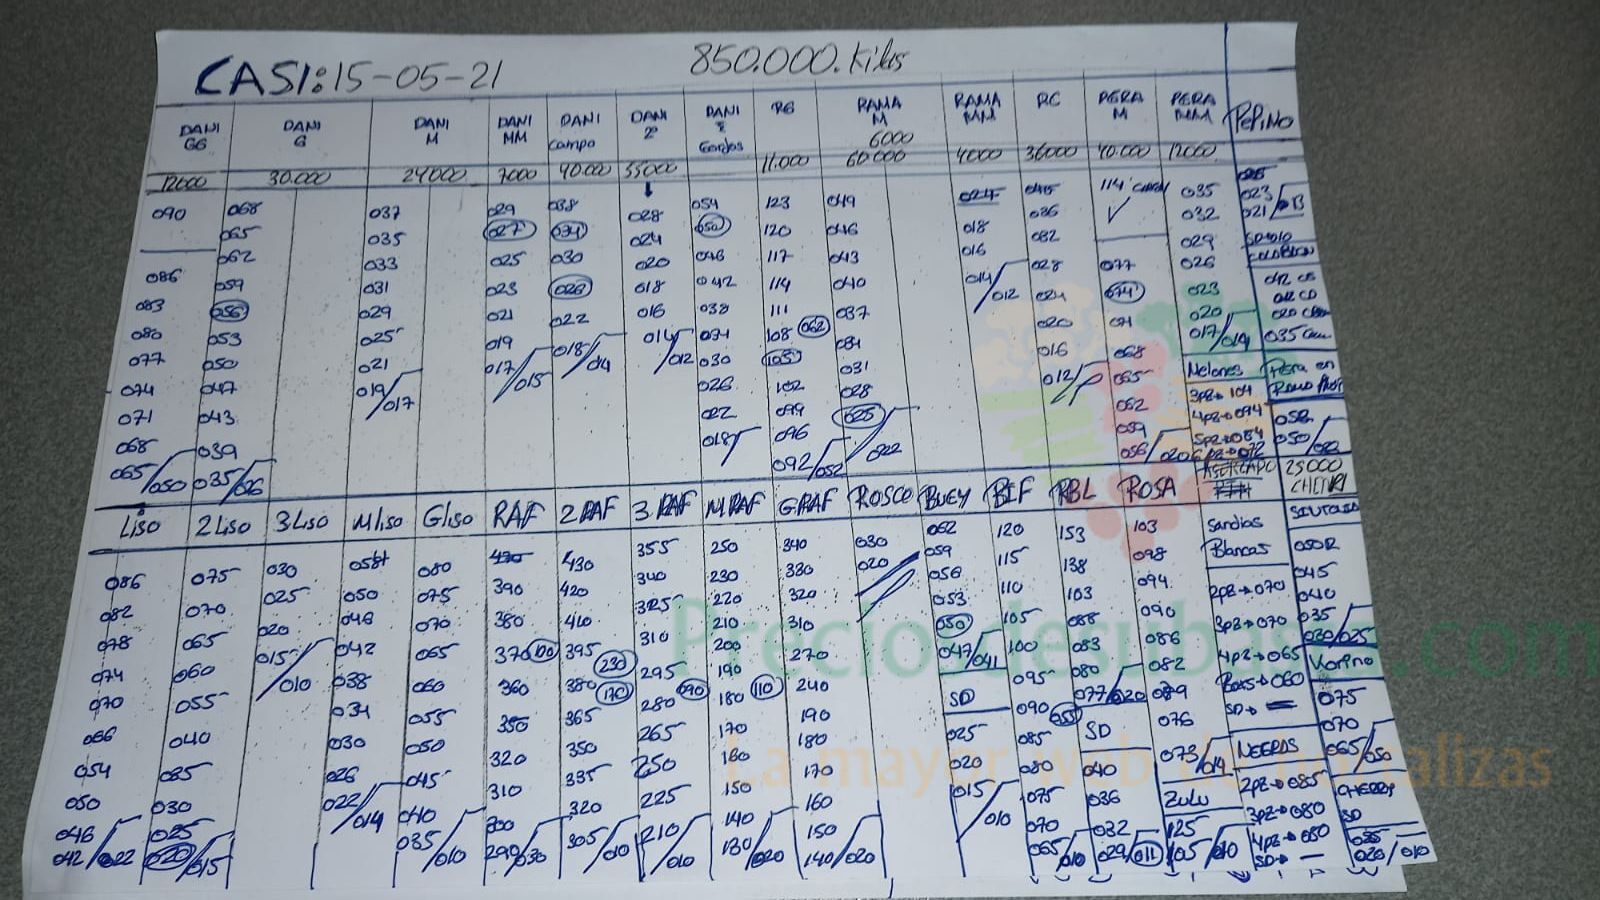 CASI: 15-05-21 850.000. Kilos
DANI GG DANI G DANI M DANI MM DANI campo DANI 2ª DANI Gordos RG RAMA M RAMA MM RC PERA M PERA MM PEPINO
6000
12000 30.000 24000 7000 40.000 55000 11.000 60.000 4000 36000 40.000 12000
090 068 037 029 038 028 054 123 049 027 045 114 035 023
065 035 027 034 024 050 120 046 018 036 032 021/013
062 033 025 030 020 046 117 043 016 032 029
086 059 031 023 026 018 042 114 040 014/012 028 077 026
083 056 029 021 022 016 038 111 037 024 074 023
080 053 025 019 018/014 014/012 034 108 062 034 020 071 020
077 050 021 017/015 030 105 031 016 068 017/014 035
074 047 019/017 026 102 028 012/ 065 Melones Pera en
071 043 022 099 025 062 3pz→104 Ramo
068 039 018/ 096 022 059 4pz→094 052
065/050 035/026 092/052 056/020 5pz→084 050/
6pz→072
25000
LISO 2 LISO 3 LISO M LISO G LISO RAF 2 RAF 3 RAF M RAF G RAF ROSCO BUEY BEF RBL ROSA
086 075 030 058 080 430 430 355 250 340 030 062 120 153 103 Sandias 050R
082 070 025 050 075 390 420 340 230 330 020 059 115 138 098 Blancas 045
078 065 020 046 070 380 410 325 220 320 056 110 103 094 2pz→070 040
074 060 015/010 042 065 370 100 395 310 210 310 053 105 088 090 3pz→070 035
070 055 038 060 360 230 380 295 200 270 050 100 083 086 4pz→065 030/025
066 040 034 055 350 170 365 280 090 190 240 047/041 095 080 082 Bors→060
054 035 030 050 320 350 265 180 110 190 SD 090 055 077/020 079 SD→ 075
050 030 026 045 310 335 250 170 180 025 085 SD 076 NEGRAS 070
046 025 022/014 040 300 320 225 160 170 020 080 040 073/014 2pz→085 065/050
042/022 020/015 035/010 290/030 305/010 210/010 150 160 015/010 075 036 ZULU 3pz→080 CHERRY
140 150 070 032 125 4pz→080 SD
130/020 140/020 065/010 029/011 105/010 SD→ 020/010
Preciosdesubastas.com
La mayor web de hortalizas